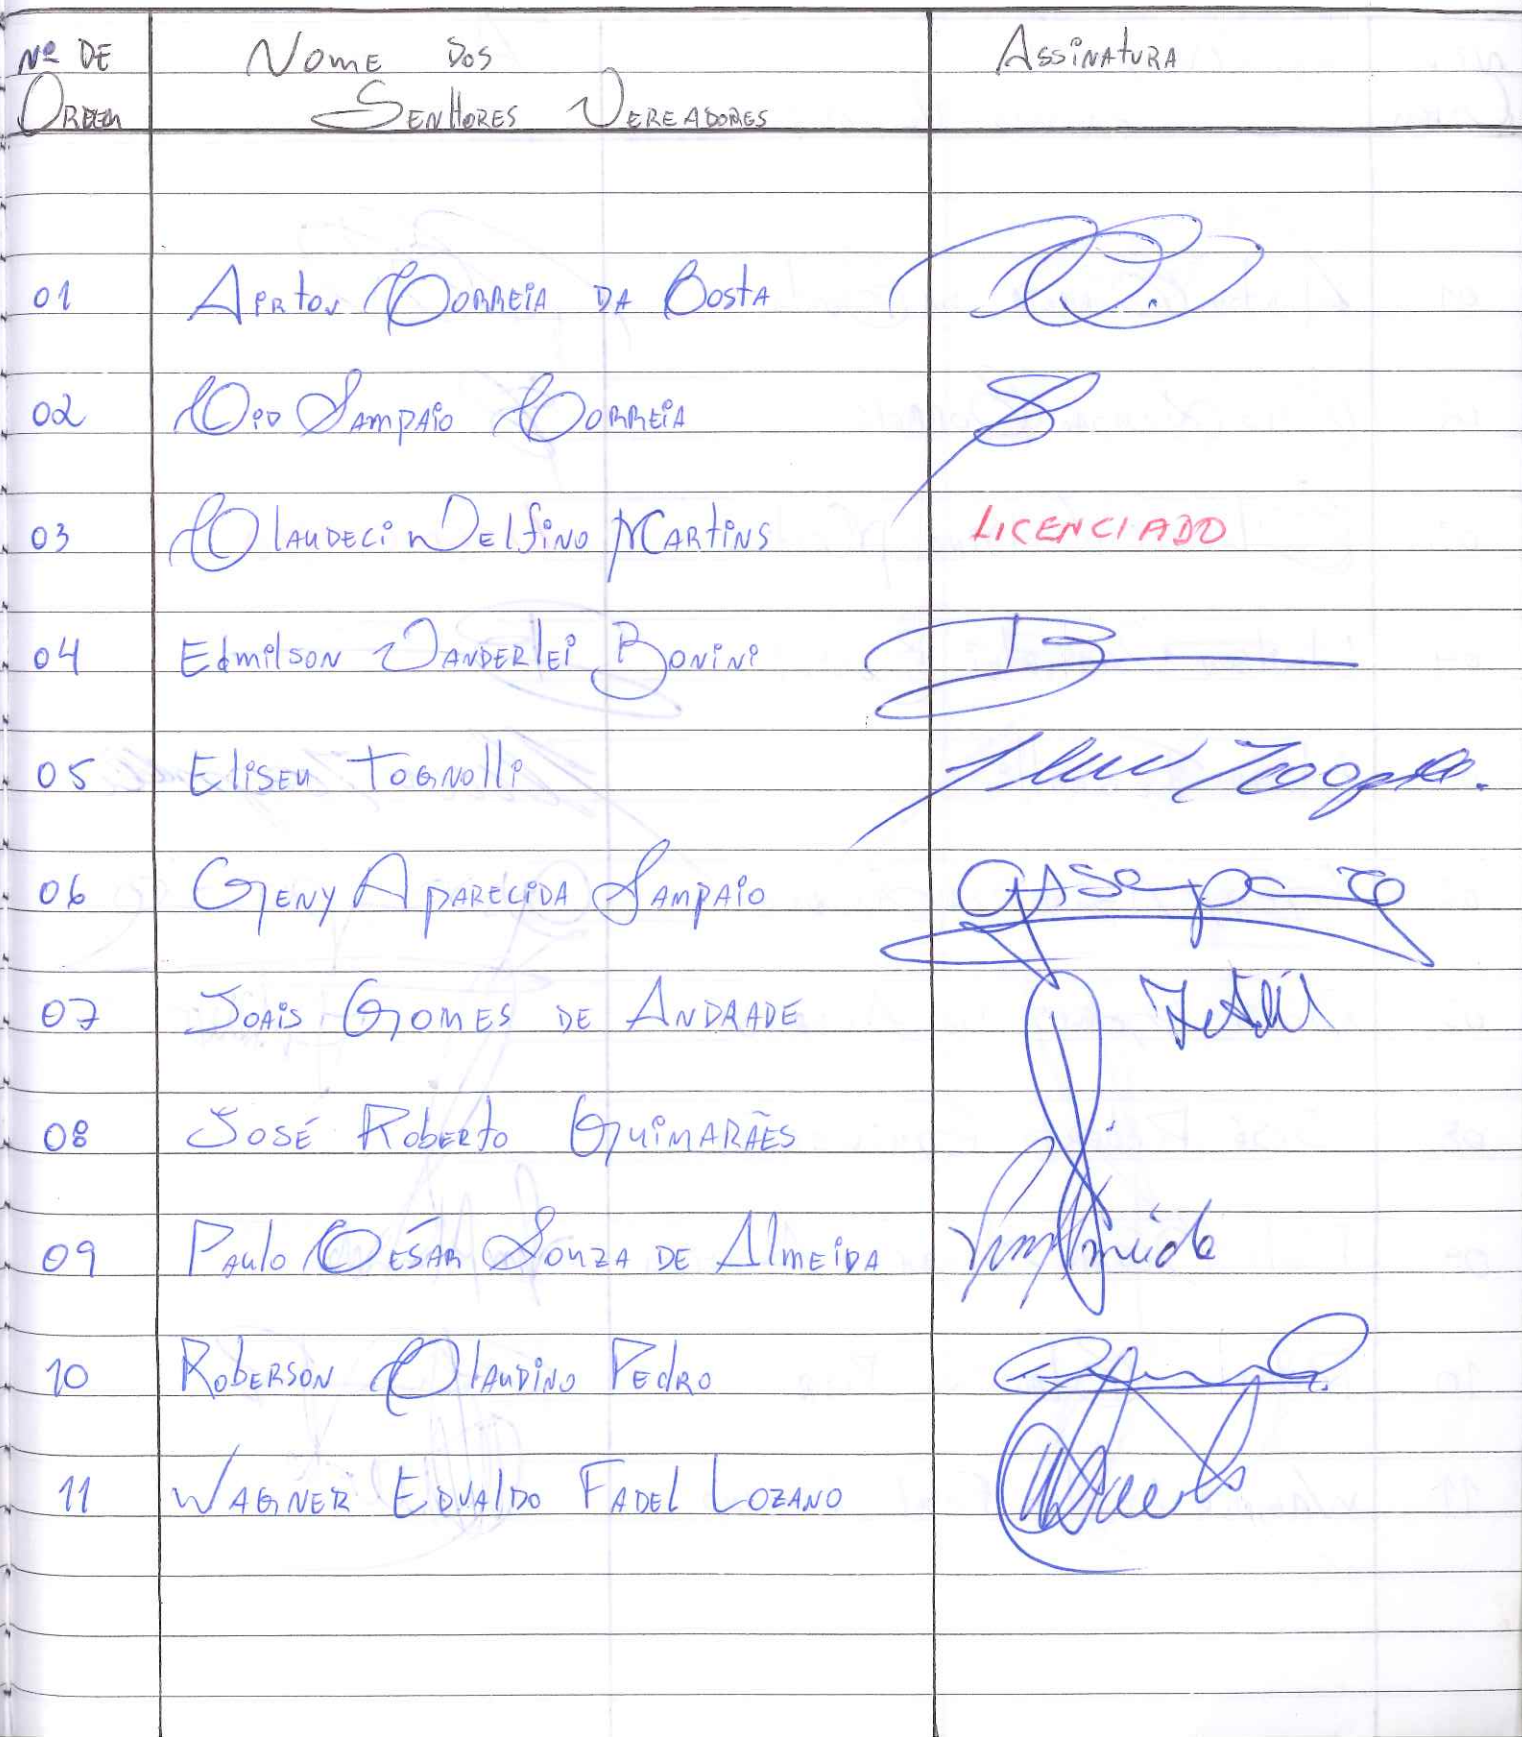 Nº DE Nome Dos Assinatura
Ordem Senhores Vereadores
01 Airton Correia da Costa
02 Cid Sampaio Correia
03 Claudeci Delfino Martins LICENCIADO
04 Edmilson Vanderlei Bonini
05 Eliseu Tognolli
06 Geny Aparecida Sampaio
07 Joais Gomes de Andrade
08 José Roberto Guimarães
09 Paulo César Souza de Almeida
10 Roberson Claudino Pedro
11 Wagner Edvaldo Fadel Lozano